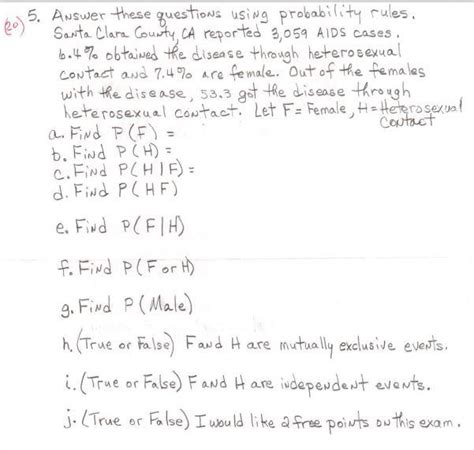 (20) 5. Answer these questions using probability rules.
Santa Clara County, CA reported 3,059 AIDS cases.
6.4% obtained the disease through heterosexual
contact and 7.4% are female. Out of the females
with the disease, 53.3 got the disease through
heterosexual contact. Let F = Female, H = Heterosexual
Contact
a. Find P(F) =
b. Find P(H) =
c. Find P(H|F) =
d. Find P(HF)
e. Find P(F|H)
f. Find P(F or H)
g. Find P(Male)
h. (True or False) F and H are mutually exclusive events.
i. (True or False) F and H are independent events.
j. (True or False) I would like 2 free points on this exam.